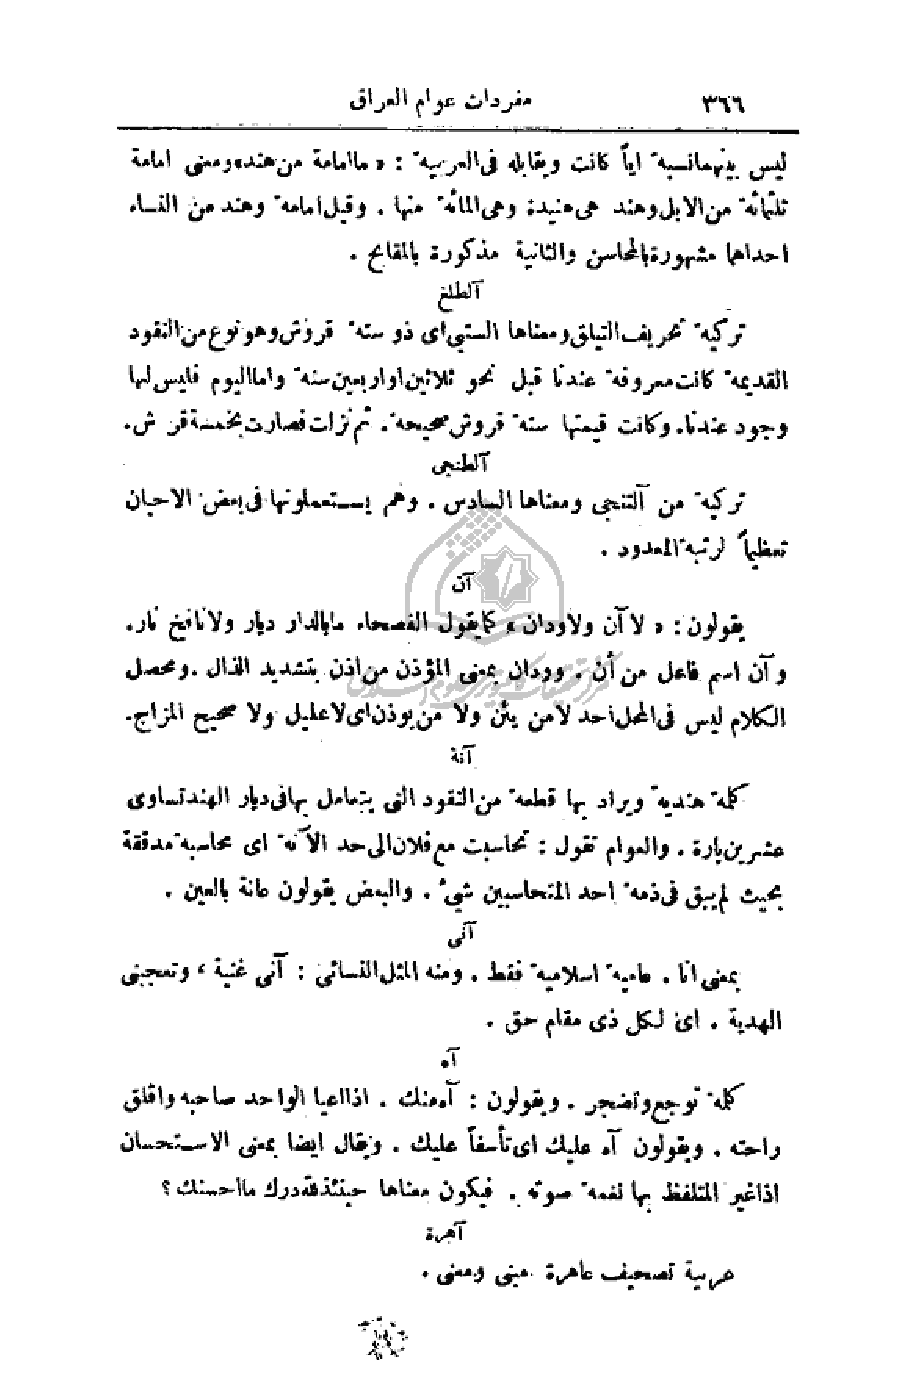 ٣٦٦ مفردات عوام العراق
ليس بينهما نسبة اياً كانت ويقابله فى العربية : « ما امامة من هند » ومعنى امامة
ثلثمائة من الابل وهند هى هنيدة وهى المائة منها . وقيل امامة وهند من النساء
احداهما مشهورة بالمحاسن والثانية مذكورة بالمقابح .
آلطلغ
تركية تحريف التيلق ومعناها الستى اى ذو ستة قروش وهو نوع من النقود
القديمة كانت معروفة عندنا قبل نحو ثلاثين او اربعين سنة واما اليوم فليس لها
وجود عندنا. وكانت قيمتها ستة قروش صحيحة. ثم نزلت فصارت بخمسة قروش.
آلطنجى
تركية من آلتنجى ومعناها السادس . وهم يستعملونها فى بعض الاحيان
تعظيماً لرتبة المعدود .
آن
يقولون : « لا آن ولا ودان » كما يقول الفصحاء ما بالدار ديار ولا نافخ نار.
وآن اسم فاعل من أن . وودان بمعنى المؤذن من اذن بتشديد الذال . ومحصل
الكلام ليس فى المحل احد لا من يئن ولا من يوذن اى لا عليل ولا صحيح المزاج.
آنة
كلمة هندية ويراد بها قطعة من النقود التى يتعامل بها فى ديار الهند تساوى
عشرين بارة . والعوام تقول : تحاسبت مع فلان الى حد الآنة اى محاسبة مدققة
بحيث لم يبق فى ذمة احد المتحاسبين شيء . والبعض يقولون عانة بالعين .
آنى
بمعنى انا . عامية اسلامية فقط . ومنه المثل النسائى : آنى غنية ، وتعجبنى
الهدية . اى لكل ذى مقام حق .
آه
كلمة توجع وتضجر . ويقولون : آه منك . اذا اعيا الواحد صاحبه واقلق
راحته . ويقولون آه عليك اى تأسفاً عليك . ويقال ايضا بمعنى الاستحسان
اذا غير المتلفظ بها نغمة صوته . فيكون معناها حينئذ لله درك ما احسنك ؟
آهرة
عربية تصحيف عاهرة مبنى ومعنى .